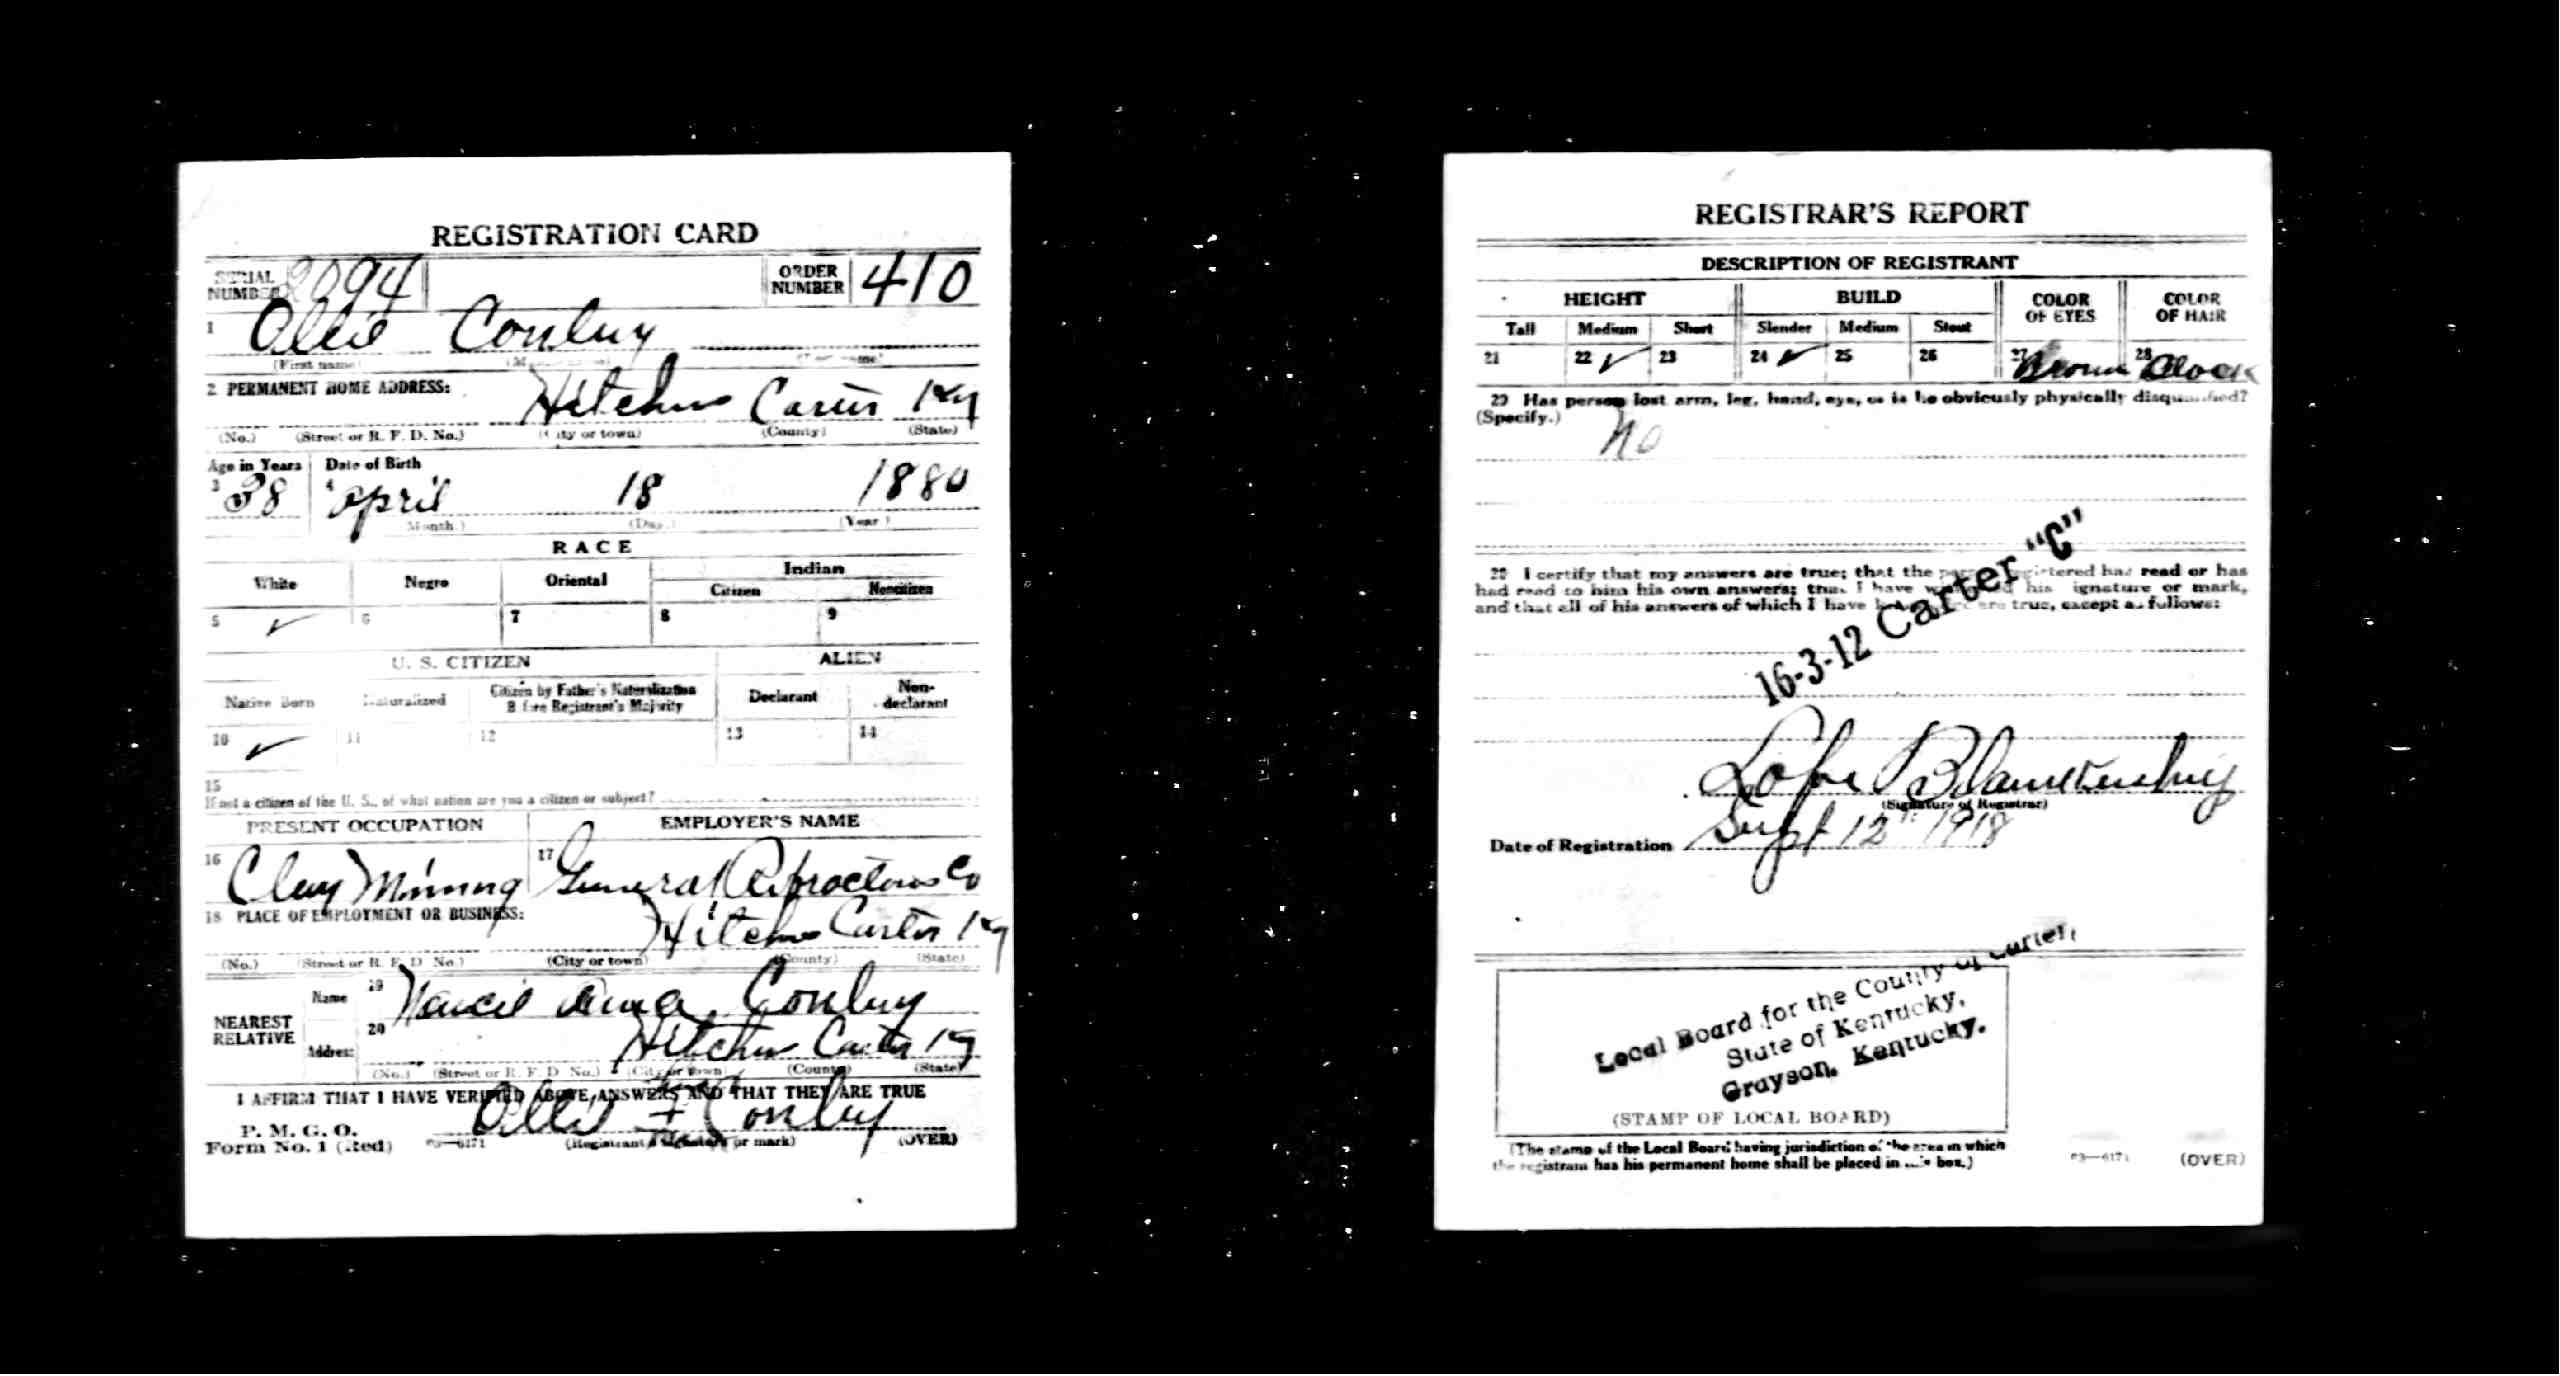 REGISTRATION CARD
SERIAL NUMBER 2094 ORDER NUMBER 410
1 Ollie Conley
(First name)
2 PERMANENT HOME ADDRESS: Hitchins Carter Ky
(No.) (Street or R. F. D. No.) (City or town) (County) (State)
Age in Years Date of Birth
3 38 4 April 18 1880
(Month.) (Day.) (Year.)
RACE
White Negro Oriental Indian
Citizen Noncitizen
5 ✓ 6 7 8 9
U. S. CITIZEN ALIEN
Native Born Naturalized Citizen by Father's Naturalization Before Registrant's Majority Declarant Non-declarant
10 ✓ 11 12 13 14
15
If not a citizen of the U. S., of what nation are you a citizen or subject?
PRESENT OCCUPATION EMPLOYER'S NAME
16 Clay Mining 17 General Refractories Co
18 PLACE OF EMPLOYMENT OR BUSINESS:
Hitchins Carter Ky
(No.) (Street or R. F. D. No.) (City or town) (County) (State)
NEAREST RELATIVE
Name 19 Conley
Address 20 Hitchins Carter Ky
(No.) (Street or R. F. D. No.) (City or town) (County) (State)
I AFFIRM THAT I HAVE VERIFIED ABOVE ANSWERS AND THAT THEY ARE TRUE
P. M. G. O.
Form No. 1 (Red) 03—6171 Ollie + Conley
(Registrant's signature or mark) (OVER)
REGISTRAR'S REPORT
DESCRIPTION OF REGISTRANT
HEIGHT BUILD COLOR OF EYES COLOR OF HAIR
Tall Medium Short Slender Medium Stout
21 22 ✓ 23 24 ✓ 25 26 27 Brown 28 Black
29 Has person lost arm, leg, hand, eye, or is he obviously physically disqualified?
(Specify.) No
30 I certify that my answers are true; that the person registered has read or has
had read to him his own answers; that I have witnessed his signature or mark,
and that all of his answers of which I have knowledge are true, except as follows:
16-3-12 Carter "C"
Blankenship
(Signature of Registrar)
Date of Registration Sept 12th 1918
Local Board for the County of Carter,
State of Kentucky,
Grayson, Kentucky.
(STAMP OF LOCAL BOARD)
(The stamp of the Local Board having jurisdiction of the area in which
the registrant has his permanent home shall be placed in this box.)
03—6171 (OVER)